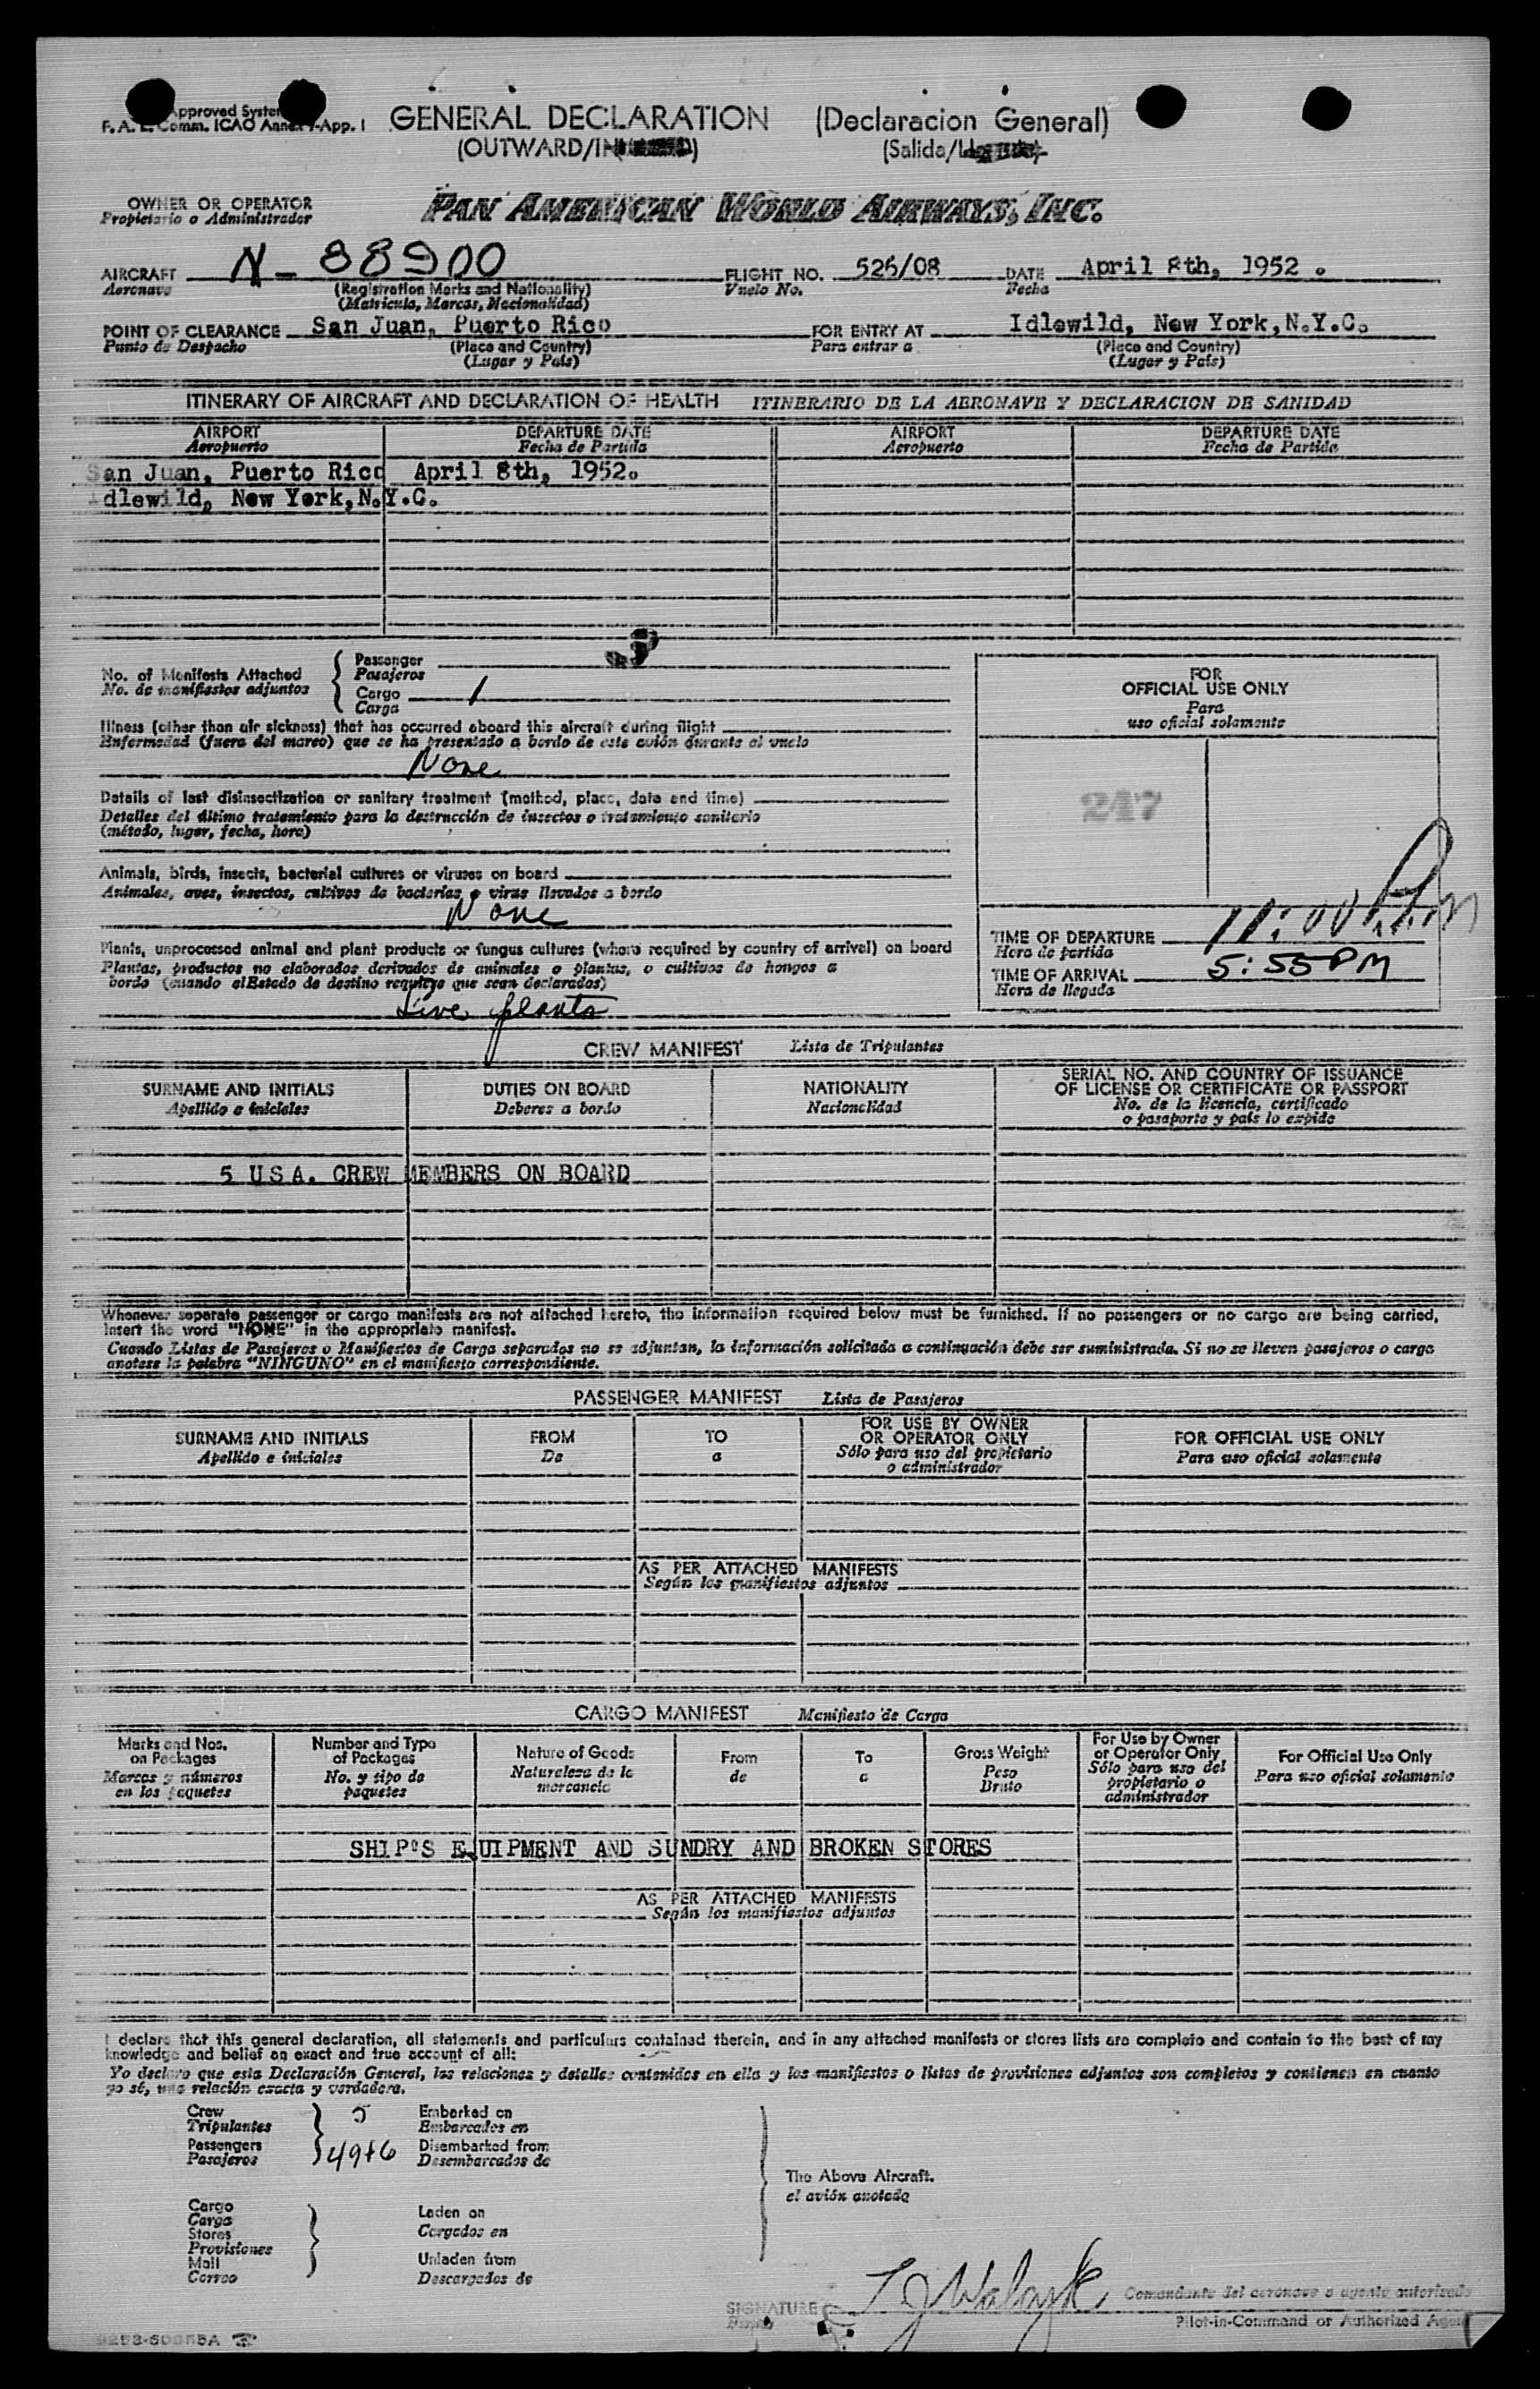 Approved System
F. A. L. Comm. ICAO Annex 9-App. I
GENERAL DECLARATION (Declaracion General)
(OUTWARD/IN (Salida/
OWNER OR OPERATOR
Propietario o Administrador
PAN AMERICAN WORLD AIRWAYS, INC.
AIRCRAFT N-88900 FLIGHT NO. 526/08 DATE April 8th, 1952.
Aeronave (Registration Marks and Nationality) Vuelo No. Fecha
(Matricula, Marcas, Nacionalidad)
POINT OF CLEARANCE San Juan, Puerto Rico FOR ENTRY AT Idlewild, New York,N.Y.C.
Punto de Despacho (Place and Country) Para entrar a (Place and Country)
(Lugar y País) (Lugar y País)
ITINERARY OF AIRCRAFT AND DECLARATION OF HEALTH ITINERARIO DE LA AERONAVE Y DECLARACION DE SANIDAD
AIRPORT DEPARTURE DATE AIRPORT DEPARTURE DATE
Aeropuerto Fecha de Partida Aeropuerto Fecha de Partida
San Juan, Puerto Rico April 8th, 1952.
Idlewild, New York,N.Y.C.
No. of Manifests Attached
No. de manifiestos adjuntos
Passenger
Pasajeros
Cargo 1
Carga
Illness (other than air sickness) that has occurred aboard this aircraft during flight
Enfermedad (fuera del mareo) que se ha presentado a bordo de este avión durante el vuelo
None
Details of last disinsectization or sanitary treatment (method, place, date and time)
Detalles del último tratamiento para la destrucción de insectos o tratamiento sanitario
(método, lugar, fecha, hora)
Animals, birds, insects, bacterial cultures or viruses on board
Animales, aves, insectos, cultivos de bacterias o virus llevados a bordo
None
Plants, unprocessed animal and plant products or fungus cultures (where required by country of arrival) on board
Plantas, productos no elaborados derivados de animales o plantas, o cultivos de hongos a
bordo (cuando el Estado de destino requiere que sean declarados)
Live plants
FOR
OFFICIAL USE ONLY
Para
uso oficial solamente
247
TIME OF DEPARTURE 11:00
Hora de partida
TIME OF ARRIVAL 5:55PM
Hora de llegada
CREW MANIFEST Lista de Tripulantes
SURNAME AND INITIALS DUTIES ON BOARD NATIONALITY SERIAL NO. AND COUNTRY OF ISSUANCE
OF LICENSE OR CERTIFICATE OR PASSPORT
Apellido e iniciales Deberes a bordo Nacionalidad No. de la licencia, certificado
o pasaporte y país lo expide
5 USA. CREW MEMBERS ON BOARD
Whenever separate passenger or cargo manifests are not attached hereto, the information required below must be furnished. If no passengers or no cargo are being carried,
insert the word "NONE" in the appropriate manifest.
Cuando Listas de Pasajeros o Manifiestos de Carga separados no se adjuntan, la información solicitada a continuación debe ser suministrada. Si no se lleven pasajeros o carga
anotese la palabra "NINGUNO" en el manifiesto correspondiente.
PASSENGER MANIFEST Lista de Pasajeros
SURNAME AND INITIALS FROM TO FOR USE BY OWNER
OR OPERATOR ONLY FOR OFFICIAL USE ONLY
Apellido e iniciales De a Sólo para uso del propietario
o administrador Para uso oficial solamente
AS PER ATTACHED MANIFESTS
Según los manifiestos adjuntos
CARGO MANIFEST Manifiesto de Carga
Marks and Nos.
on Packages
Marcas y números
en los paquetes
Number and Type
of Packages
No. y tipo de
paquetes
Nature of Goods
Naturaleza de la
mercancia
From
de
To
a
Gross Weight
Peso
Bruto
For Use by Owner
or Operator Only
Sólo para uso del
propietario o
administrador
For Official Use Only
Para uso oficial solamente
SHIP'S EQUIPMENT AND SUNDRY AND BROKEN STORES
AS PER ATTACHED MANIFESTS
Según los manifiestos adjuntos
I declare that this general declaration, all statements and particulars contained therein, and in any attached manifests or stores lists are complete and contain to the best of my
knowledge and belief an exact and true account of all:
Yo declaro que esta Declaración General, las relaciones y detalles contenidos en ella y los manifiestos o listas de provisiones adjuntos son completos y contienen en cuanto
yo sé, una relación exacta y verdadera.
Crew 5 Embarked on
Tripulantes Embarcados en
Passengers 49+6 Disembarked from
Pasajeros Desembarcados de
The Above Aircraft.
el avión anotado
Cargo
Carga
Stores
Provisiones
Mail
Correo
Laden on
Cargados en
Unladen from
Descargados de
SIGNATURE
Firma
Comandante del aeronave o agente autorizado
Pilot-in-Command or Authorized Agent